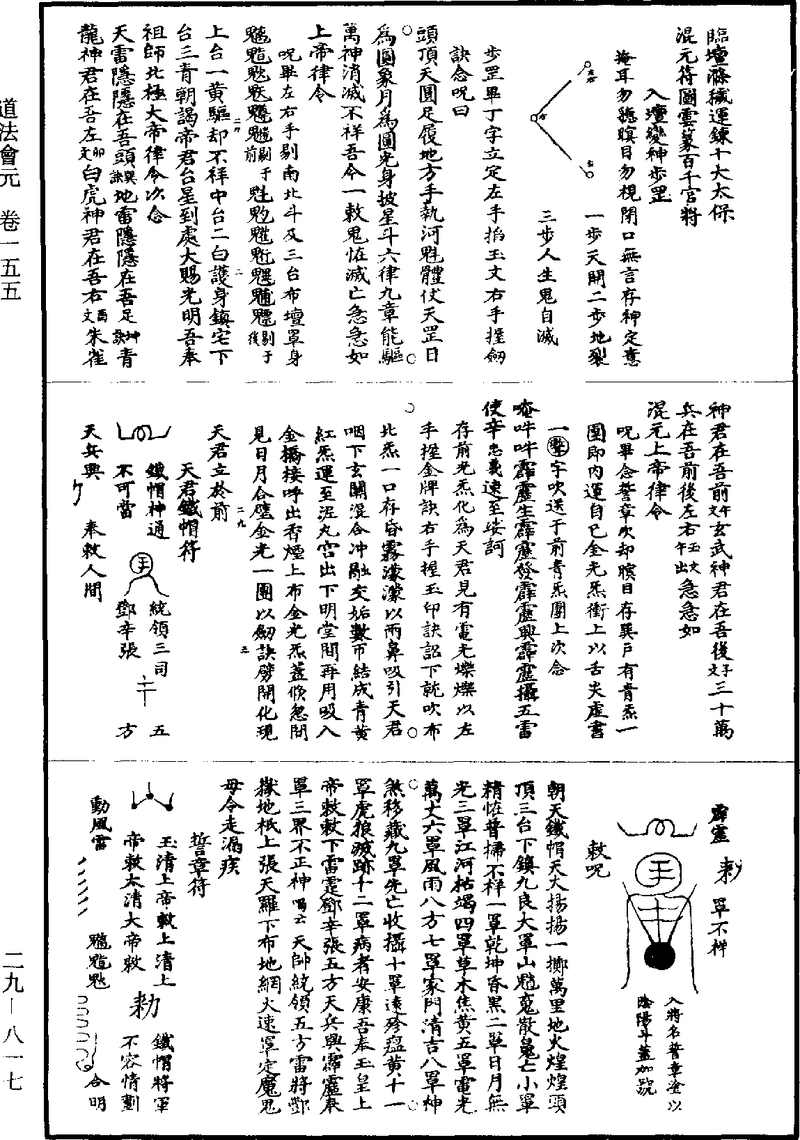 道法會元　卷一五五
二九—八一七
臨壇滌穢運鍊十大太保
混元符圖雲篆百千官將
入壇變神步罡
掩耳勿聽瞑目勿視閉口無言存神定意
一步天開二步地裂
三步人生鬼自滅
步罡畢丁字立定左手掐玉文右手握劒
訣念呪曰
頭頂天圓足履地方手執河魁體伏天罡日
為圓象月為圓光身披星斗六律九章能驅
萬神消滅不祥吾今一敕鬼恠滅亡急急如
上帝律令
呪畢左右手剔南北斗及三台布壇罩身
上台一黃驅却不祥中台二白護身鎮宅下
台三青朝謁帝君台星到處大賜光明吾奉
祖師北極大帝律令次念
天雷隱隱在吾頭地雷隱隱在吾足青
龍神君在吾左卯文白虎神君在吾右酉文朱雀
神君在吾前午文玄武神君在吾後子文三十萬
兵在吾前後左右急急如
混元上帝律令
呪畢念誓章次却瞑目存巽戶有青炁一
團即內運自己金光炁衝上以舌尖虛書
字吹送于前青炁團上次念
唵吽吽霹靂生霹靂發霹靂興霹靂攝五雷
使辛忠義速至娑訶
存前光炁化為天君見有電光爍爍以左
手握金牌訣右手握玉印訣詔下就吹布
北炁一口存昏霧濛濛以兩鼻吸引天君
咽下玄關混合冲融交姤數帀結成青黃
紅炁運至泥丸宮出下明堂間再用吸入
金橋接呼出香煙上布金光炁蓋倏忽間
見日月合璧金光一團以劒訣劈開化現
天君立於前
天君鐵帽符
鐵帽神通
不可當
統領三司
鄧辛張
五
方
天兵興
奉敕人間
霹靂
敕
罩不祥
入將名誓章塗以
陰陽斗蓋加號
敕呪
朝天鐵帽天大揚揚一擲萬里地火煌煌頭
頂三台下鎮九良大罩山魈鬼散鬼亡小罩
精恠普掃不祥一罩乾坤昏黑二罩日月無
光三罩江河枯竭四罩草木焦黃五罩電光
萬丈六罩風雨八方七罩家門清吉八罩神
煞移藏九罩先亡收攝十罩速殄瘟黃十一
罩虎狼滅跡十二罩病者安康吾奉玉皇上
帝敕敕下雷霆鄧辛張五方天兵興霹靂奉
罩三界不正神天帥統領五方雷將鄧
嶽地祇上張天羅下布地網火速罩定魔鬼
毋令走漏疾
誓章符
玉清上帝敕上清上
帝敕太清大帝敕
敕
鐵帽將軍
不容情劃
動風雷
合明